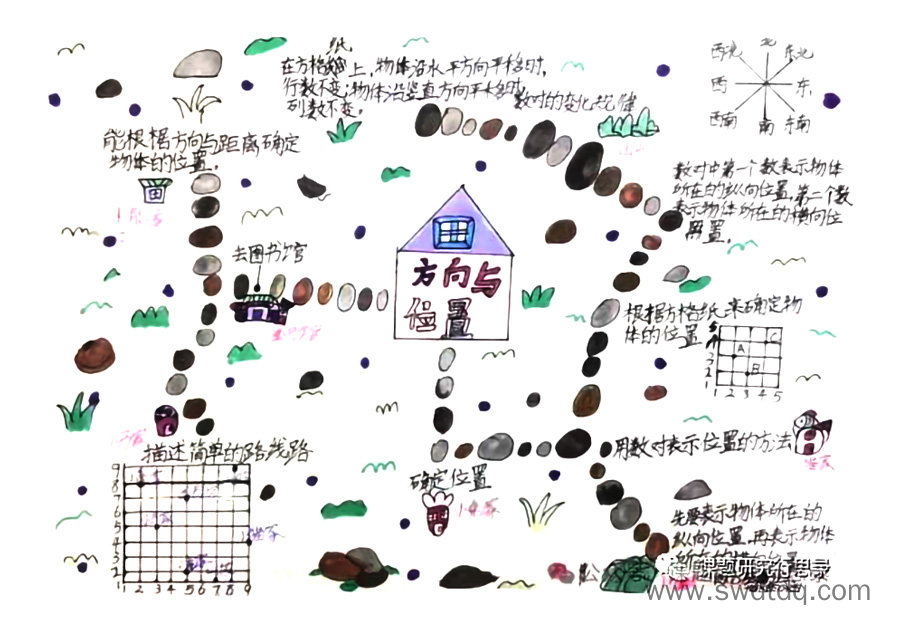 纸
在方格纸上，物体沿水平方向平移时，
行数不变；物体沿竖直方向平移时，
列数不变。
数对的变化规律
西北 北 东北
西 东
西南 南 东南
能根据方向与距离确定
物体的位置。
数对中第一个数表示物体
所在的纵向位置，第二个数
表示物体所在的横向位
置。
去图书馆
方向与
位置
根据方格纸来确定物
体的位置
5
4 C
3 A
2 B
1
1 2 3 4 5
用数对表示位置的方法
描述简单的路线路
确定位置
9
8
7
6
5
4
3
2
1
1 2 3 4 5 6 7 8 9
先要表示物体所在的
纵向位置，再表示物体
所在的横向位置
课题研究
www.swdtdq.com